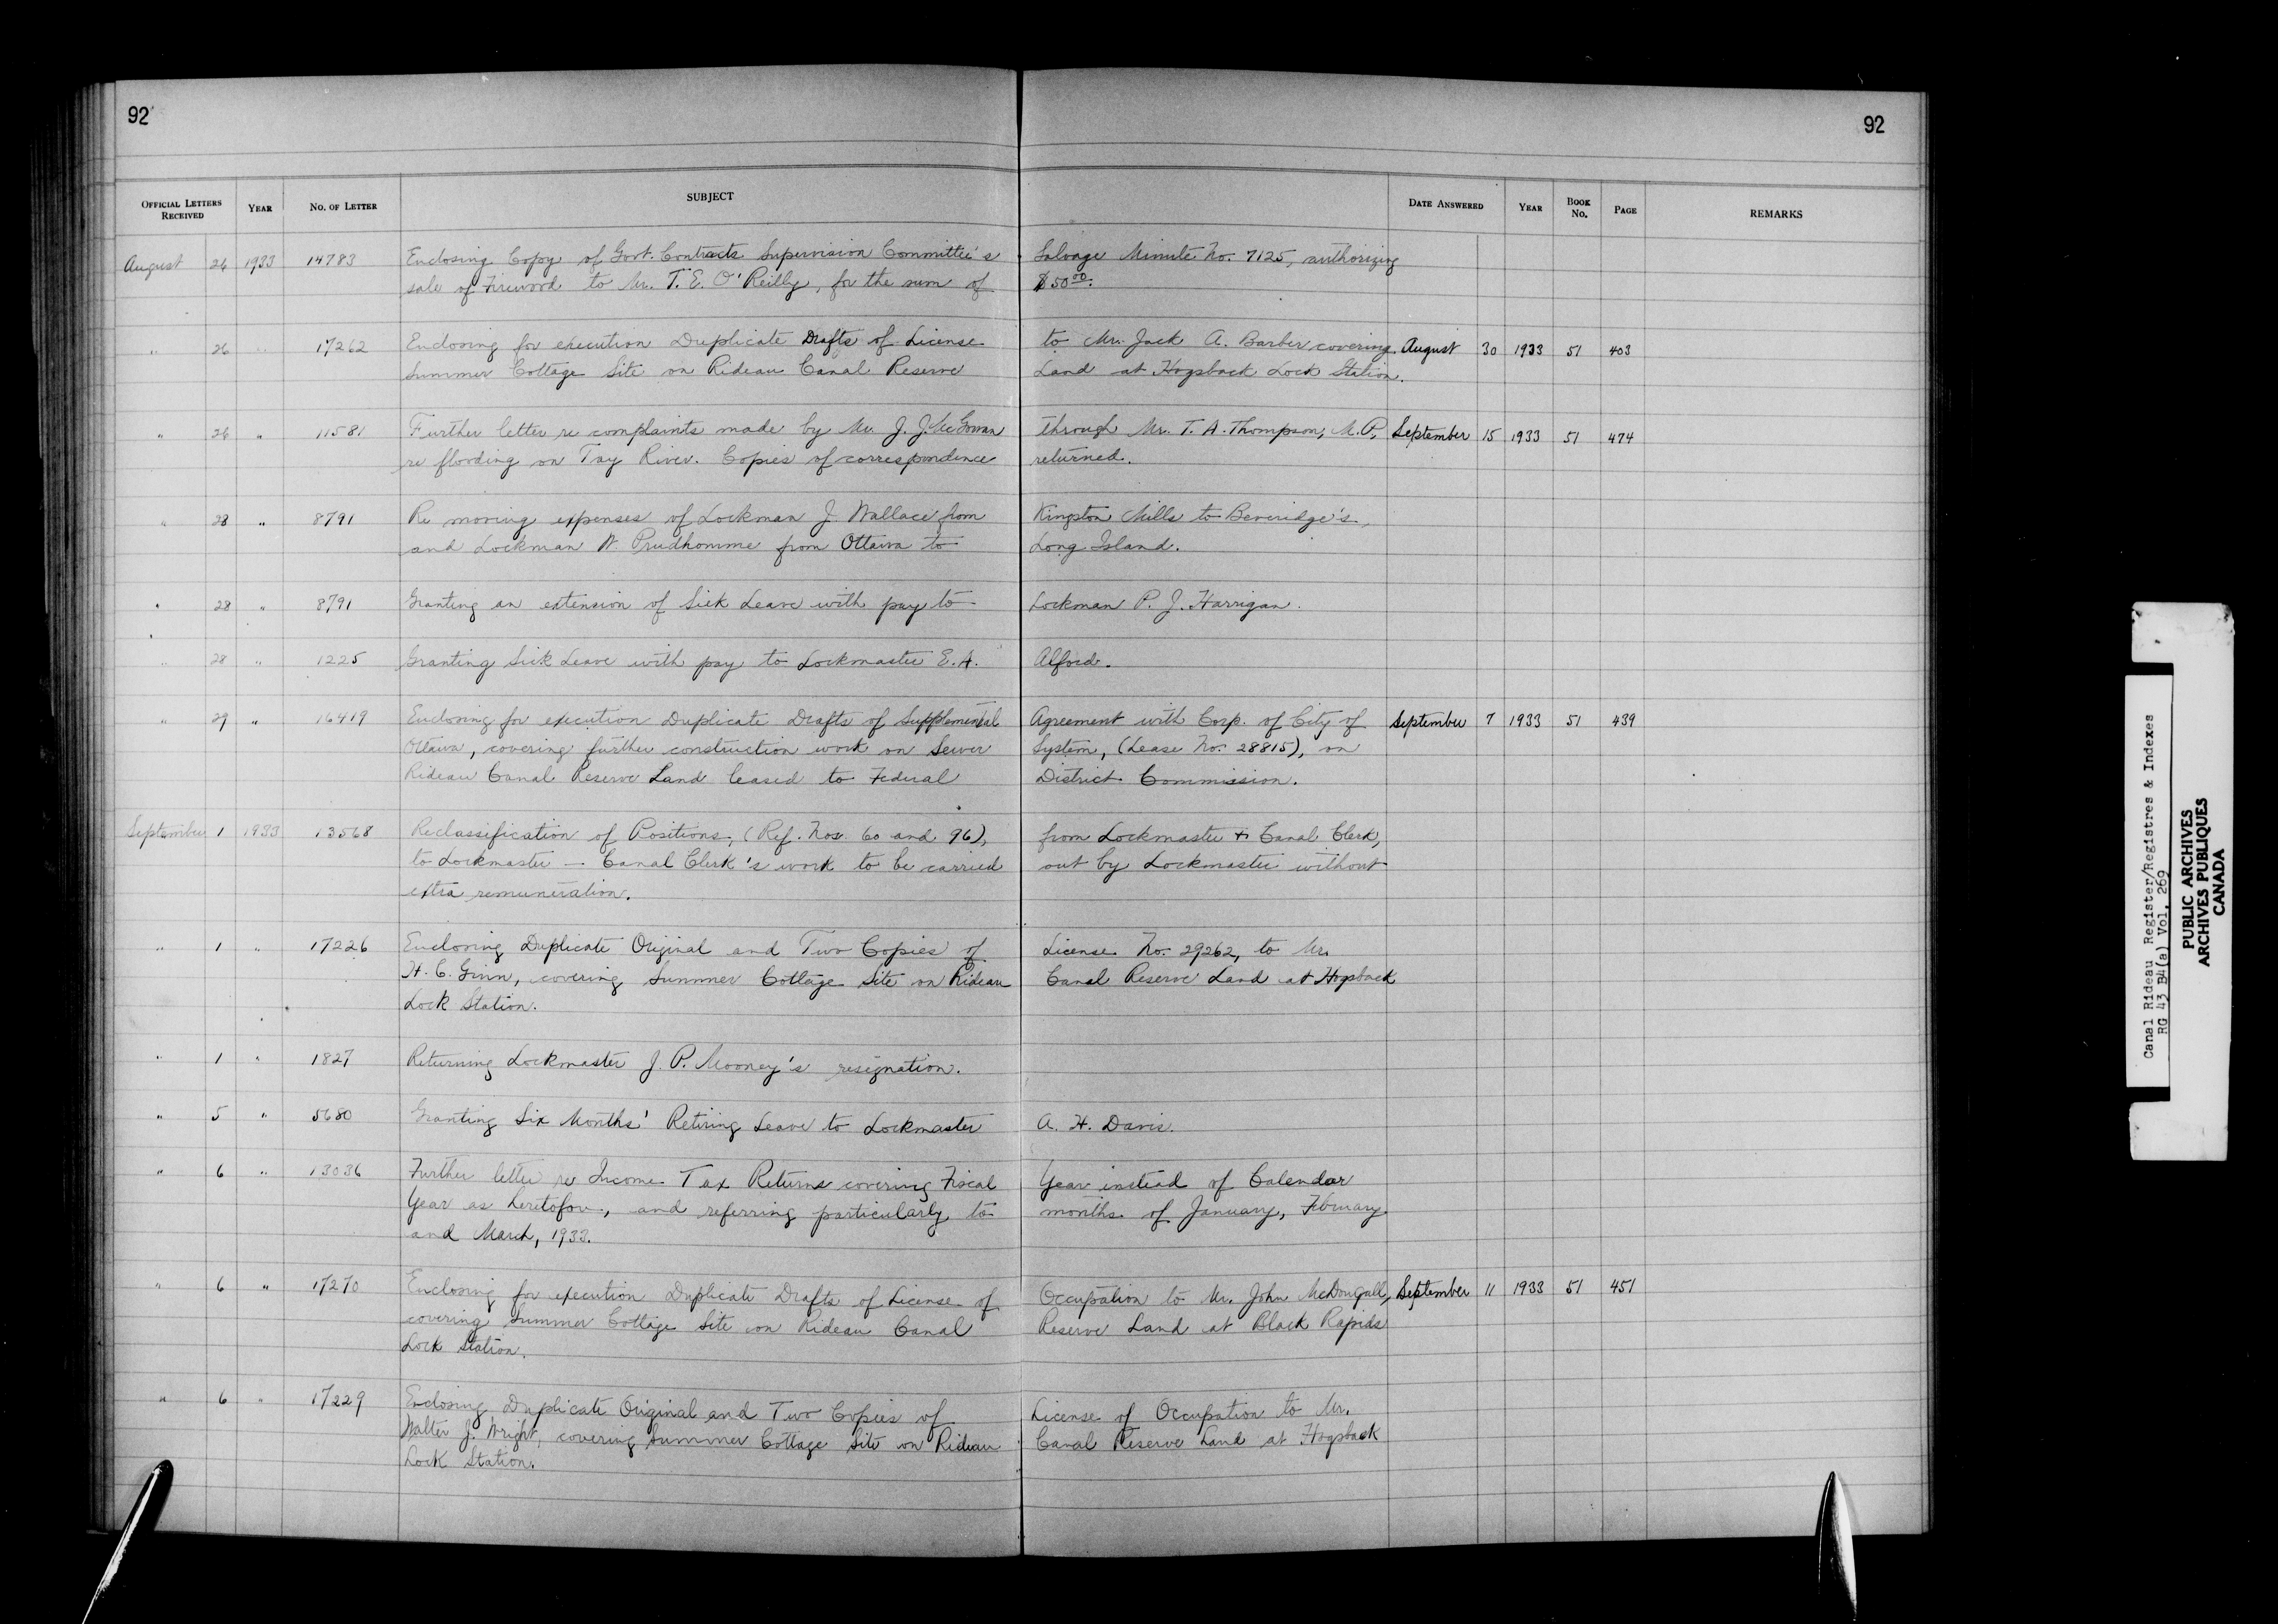 92
92
OFFICIAL LETTERS RECEIVED YEAR NO. OF LETTER SUBJECT DATE ANSWERED YEAR BOOK NO. PAGE REMARKS
August 26 1933 14783 Enclosing Copy of Govt. Contracts Supervision Committee's Salvage Minute No. 7125, authorizing
sale of Firewood to Mr. T. E. O'Reilly, for the sum of $50.00.
" 26 " 17262 Enclosing for execution Duplicate Drafts of License to Mr. Jack A. Barber covering August 30 1933 51 403
Summer Cottage Site on Rideau Canal Reserve Land at Hogsback Lock Station.
" 26 " 11581 Further letter re complaints made by Mr. J. J. McGowan through Mr. T. A. Thompson, M.P. September 15 1933 51 474
re flooding on Tay River. Copies of correspondence returned.
" 28 " 8791 Re moving expenses of Lockman J. Wallace from Kingston Mills to Beveridge's,
and Lockman W. Prudhomme from Ottawa to Long Island.
" 28 " 8791 Granting an extension of Sick Leave with pay to Lockman P. J. Harrigan.
" 28 " 1225 Granting Sick Leave with pay to Lockmaster E. A. Alford.
" 29 " 16419 Enclosing for execution Duplicate Drafts of Supplemental Agreement with Corp. of City of September 7 1933 51 439
Ottawa, covering further construction work on Sewer System, (Lease No. 28815), on
Rideau Canal Reserve Land leased to Federal District Commission.
September 1 1933 13568 Reclassification of Positions, (Ref. Nos. 60 and 96), from Lockmaster & Canal Clerk,
to Lockmaster - Canal Clerk's work to be carried out by Lockmaster without
extra remuneration.
" 1 " 17226 Enclosing Duplicate Original and Two Copies of License No. 29262, to Mr.
H. C. Ginn, covering Summer Cottage Site on Rideau Canal Reserve Land at Hogsback
Lock Station.
" 1 " 1827 Returning Lockmaster J. P. Mooney's resignation.
" 5 " 5680 Granting Six Months' Retiring Leave to Lockmaster A. H. Davis.
" 6 " 13036 Further letter re Income Tax Returns covering Fiscal Year instead of Calendar
Year as heretofore, and referring particularly to months of January, February
and March, 1933.
" 6 " 17270 Enclosing for execution Duplicate Drafts of License of Occupation to Mr. John McDougall, September 11 1933 51 451
covering Summer Cottage Site on Rideau Canal Reserve Land at Black Rapids
Lock Station.
" 6 " 17229 Enclosing Duplicate Original and Two Copies of License of Occupation to Mr.
Walter J. Wright, covering Summer Cottage Site on Rideau Canal Reserve Land at Hogsback
Lock Station.
Canal Rideau Register/Registres & Indexes
RG 43 B4(a) Vol. 269
PUBLIC ARCHIVES
ARCHIVES PUBLIQUES
CANADA